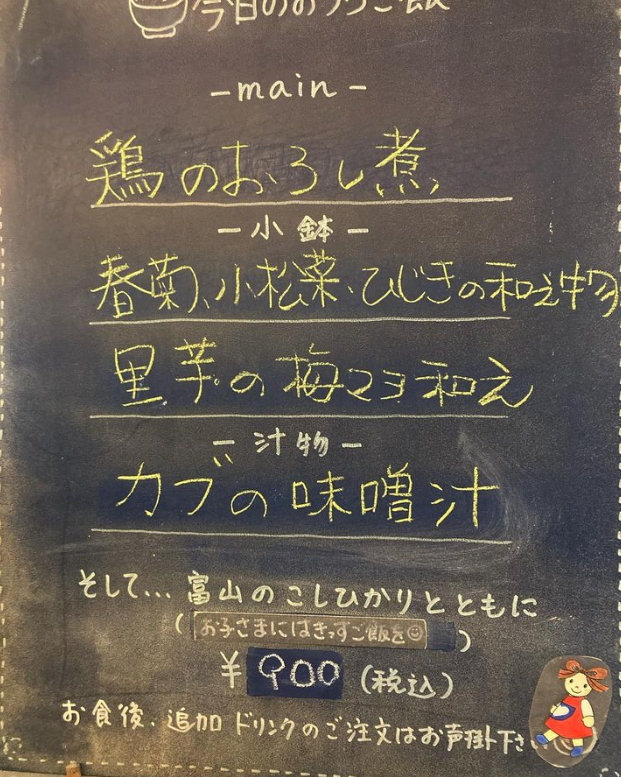 今日のおうちご飯
-main-
鶏のおろし煮
-小鉢-
春菊、小松菜、ひじきの和え物
里芋の梅マヨ和え
-汁物-
カブの味噌汁
そして...富山のこしひかりとともに
(お子さまにはきっずご飯を☺)
¥900(税込)
お食後、追加ドリンクのご注文はお声掛下さい